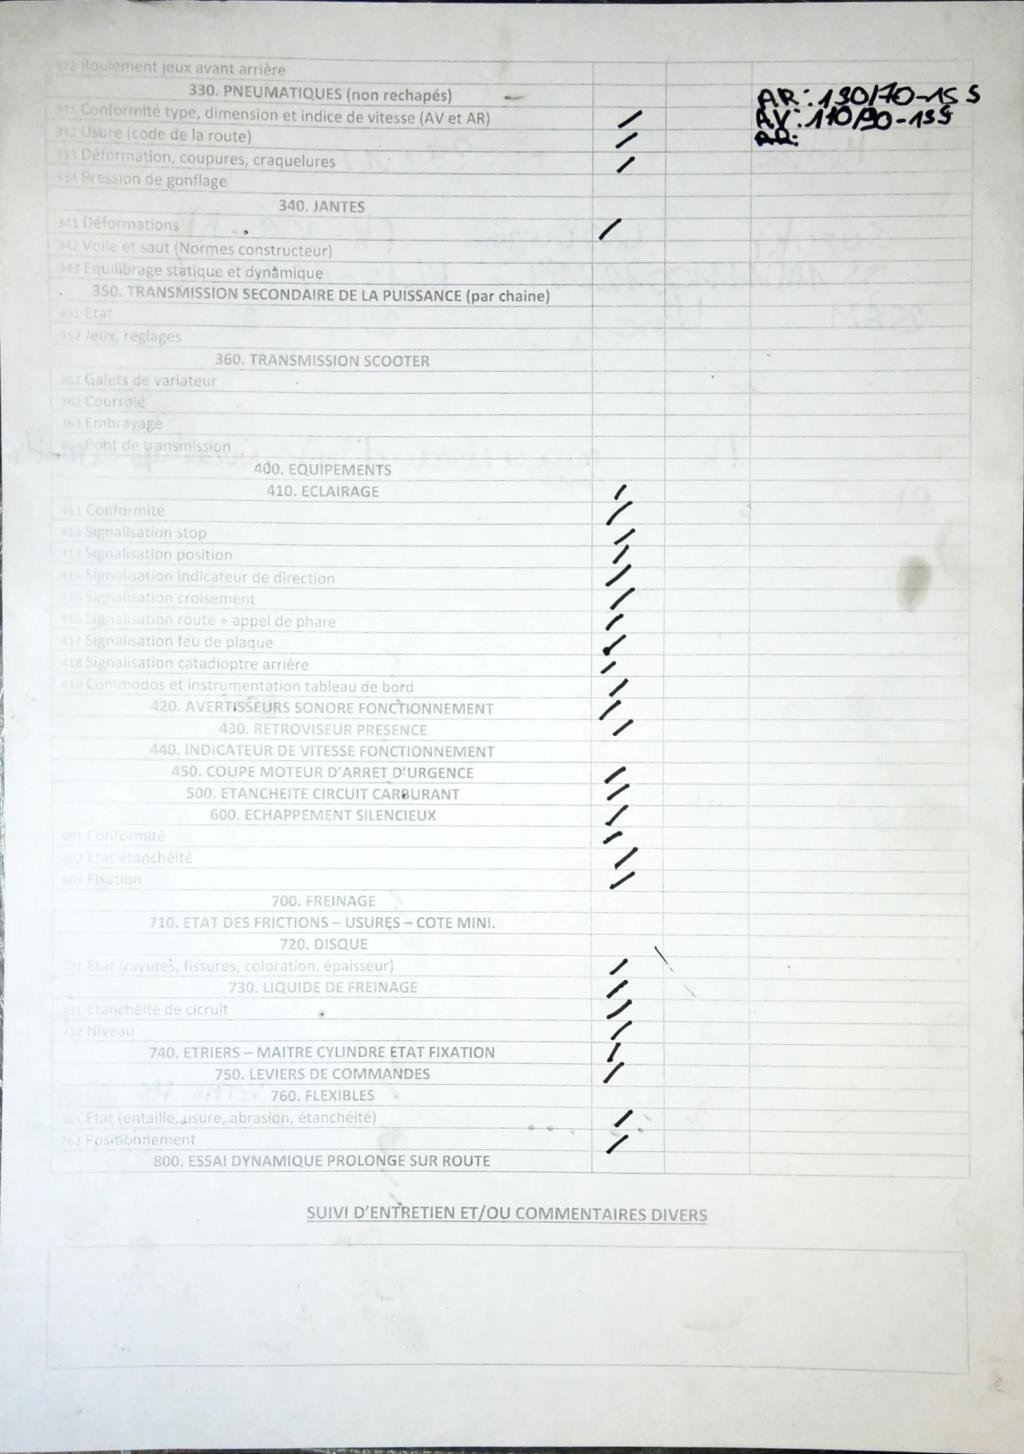 322 Roulement jeux avant arrière
330. PNEUMATIQUES (non rechapés)
AR: 130/70-15 S
331 Conformité type, dimension et indice de vitesse (AV et AR)
AV: 110/90-13S
332 Usure (code de la route)
AR:
333 Déformation, coupures, craquelures
334 Pression de gonflage
340. JANTES
341 Déformations
342 Voile et saut (Normes constructeur)
343 Equilibrage statique et dynâmique
350. TRANSMISSION SECONDAIRE DE LA PUISSANCE (par chaine)
351 Etat
352 Jeux, réglages
360. TRANSMISSION SCOOTER
361 Galets de variateur
362 Courroie
363 Embrayage
364 Pont de transmission
400. EQUIPEMENTS
410. ECLAIRAGE
411 Conformité
412 Signalisation stop
413 Signalisation position
414 Signalisation indicateur de direction
415 Signalisation croisement
416 Signalisation route + appel de phare
417 Signalisation feu de plaque
418 Signalisation catadioptre arrière
419 Commodos et instrumentation tableau de bord
420. AVERTISSEURS SONORE FONCTIONNEMENT
430. RETROVISEUR PRESENCE
440. INDICATEUR DE VITESSE FONCTIONNEMENT
450. COUPE MOTEUR D'ARRET D'URGENCE
500. ETANCHEITE CIRCUIT CARBURANT
600. ECHAPPEMENT SILENCIEUX
601 Conformité
602 Etat étanchéité
603 Fixation
700. FREINAGE
710. ETAT DES FRICTIONS – USURES – COTE MINI.
720. DISQUE
721 Etat (rayures, fissures, coloration, épaisseur)
730. LIQUIDE DE FREINAGE
731 Etanchéité de cicruit
732 Niveau
740. ETRIERS – MAITRE CYLINDRE ETAT FIXATION
750. LEVIERS DE COMMANDES
760. FLEXIBLES
761 Etat (entaille, usure, abrasion, étanchéité)
762 Positionnement
800. ESSAI DYNAMIQUE PROLONGE SUR ROUTE
SUIVI D'ENTRETIEN ET/OU COMMENTAIRES DIVERS